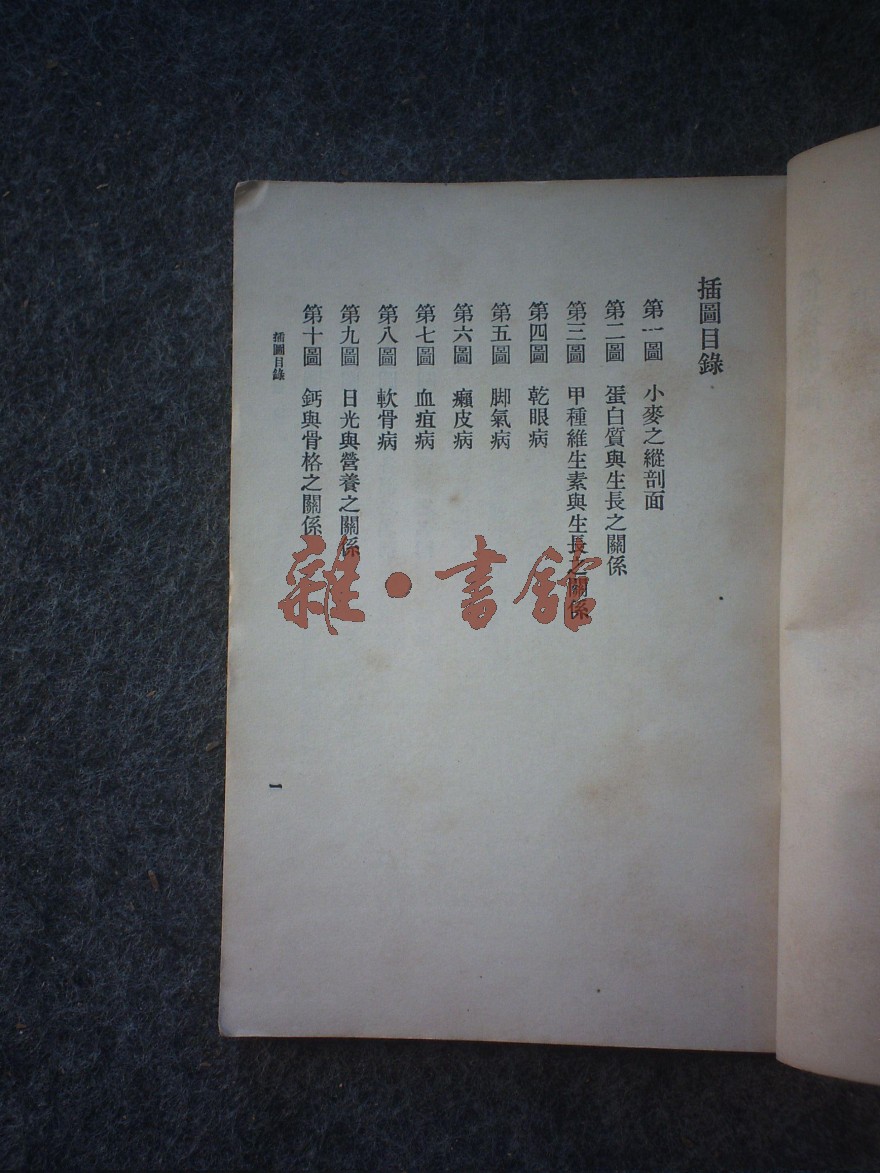 插圖目錄
第一圖 小麥之縱剖面
第二圖 蛋白質與生長之關係
第三圖 甲種維生素與生長之關係
第四圖 乾眼病
第五圖 脚氣病
第六圖 癩皮病
第七圖 血疽病
第八圖 軟骨病
第九圖 日光與營養之關係
第十圖 鈣與骨格之關係
插圖目錄
一
雜·書館